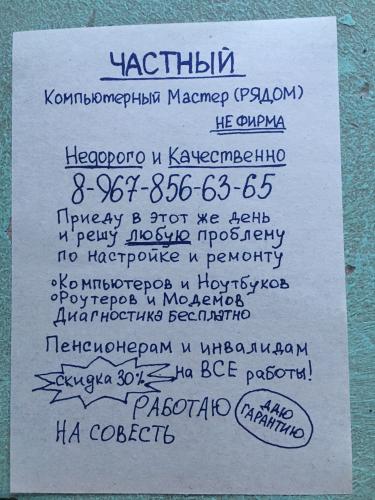 ЧАСТНЫЙ
Компьютерный Мастер (РЯДОМ)
НЕ ФИРМА
Недорого и Качественно
8-967-856-63-65
Приеду в этот же день
и решу любую проблему
по настройке и ремонту
•Компьютеров и Ноутбуков
•Роутеров и Модемов
Диагностика бесплатно
Пенсионерам и инвалидам
скидка 30% на ВСЕ работы!
РАБОТАЮ
НА СОВЕСТЬ
ДАЮ
ГАРАНТИЮ